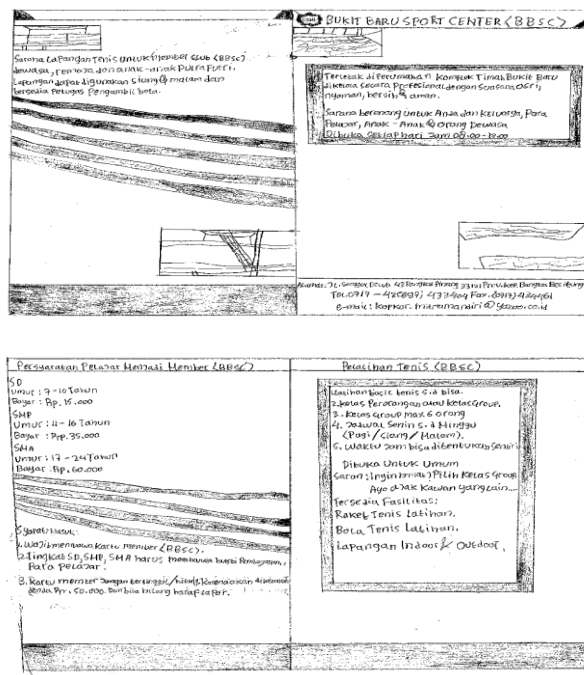 Sarana Lapangan Tenis Untuk Member Club (BBSC)
dewasa, remaja dan anak-anak Putra Putri.
Lapangan dapat digunakan siang & malam dan
tersedia Petugas Pengambil bola.
BUKIT BARU SPORT CENTER (BBSC)
Terletak di Perumahan Komplek Timah Bukit Baru
dikelola secara Profesional dengan suasana Asri,
nyaman, bersih & aman.
Sarana berenang untuk Anda dan keluarga, Para
Pelajar, Anak - Anak & Orang Dewasa
Dibuka Setiap hari Jam 08.00 - 18.00
Pangkal Pinang
Fax.
e-mail :
Persyaratan Pelajar Menjadi Member (BBSC)
SD
Umur : 7 - 10 Tahun
Bayar : Rp. 15.000
SMP
Umur : 11 - 16 Tahun
Bayar : Rp. 35.000
SMA
Umur : 17 - 24 Tahun
Bayar : Rp. 60.000
Syarat Masuk :
1. Wajib membawa kartu member (BBSC).
2. Tingkat SD, SMP, SMA harus membawa
Para Pelajar.
3. Kartu member Jangan
denda Rp. 50.000. Dan bila hilang harap lapor.
Pelatihan Tenis (BBSC)
Latihan basic tenis s.d bisa.
2. Kelas Perorangan atau Kelas Group.
3. Kelas Group max 6 orang
4. Jadwal Senin s.d Minggu
(Pagi / Siang / Malam).
5. Waktu Jam bisa ditentukan Sendiri
Dibuka Untuk Umum
Saran : Ingin Pilih Kelas Group
Ayo ajak Kawan yang lain....
Tersedia Fasilitas :
Raket Tenis Latihan.
Bola Tenis Latihan.
Lapangan Indoor & Outdoor.